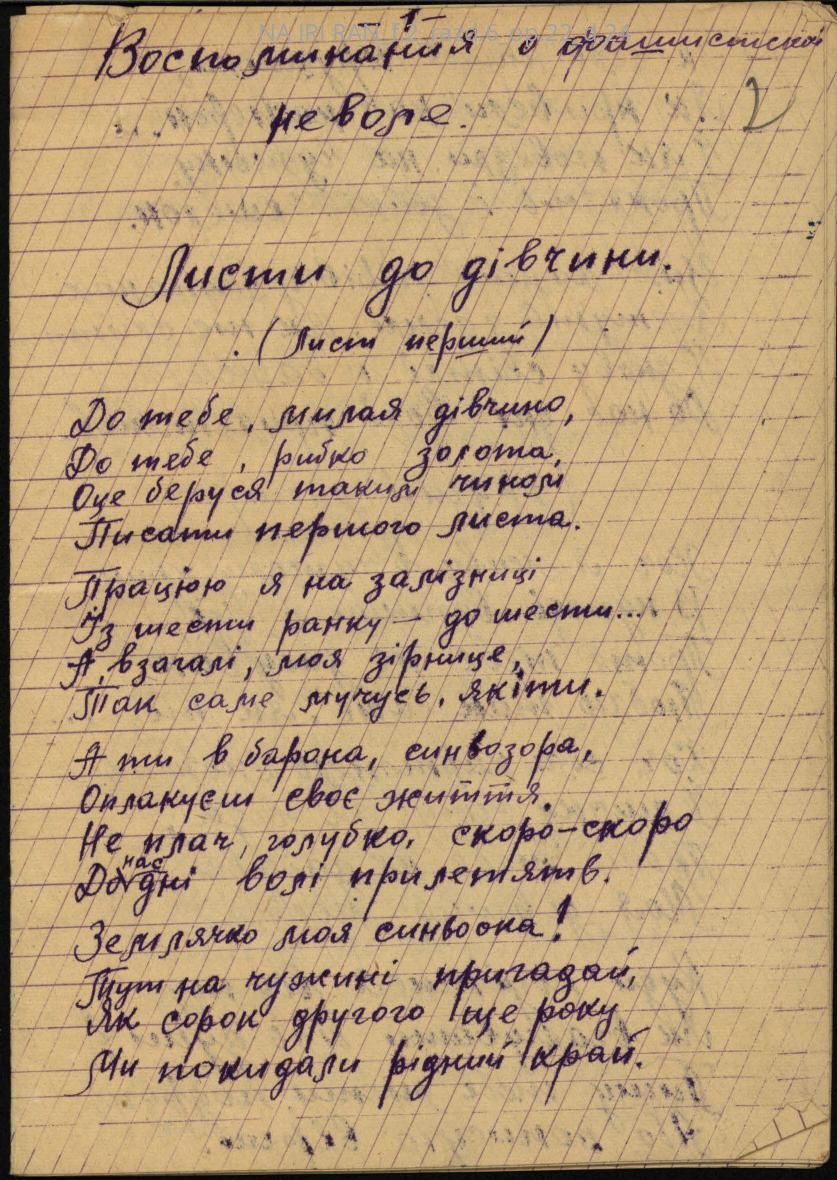 1
Воспоминания о фашистской
неволе.
2
Листи до дівчини.
(Лист перший)
До тебе, милая дівчино,
До тебе, рибко золота,
Оце беруся таким чином
Писати першого листа.
Працюю я на залізниці
Із шести ранку – до шести...
А, взагалі, моя зірнице,
Так саме мучусь, як і ти.
А ти в барона, синьозора,
Оплакуєш своє життя.
Не плач, голубко, скоро-скоро
До нас дні волі прилетять.
Землячко моя синьоока!
Тут на чужині пригадай,
Як сорок другого ще року
Ми покидали рідний край.